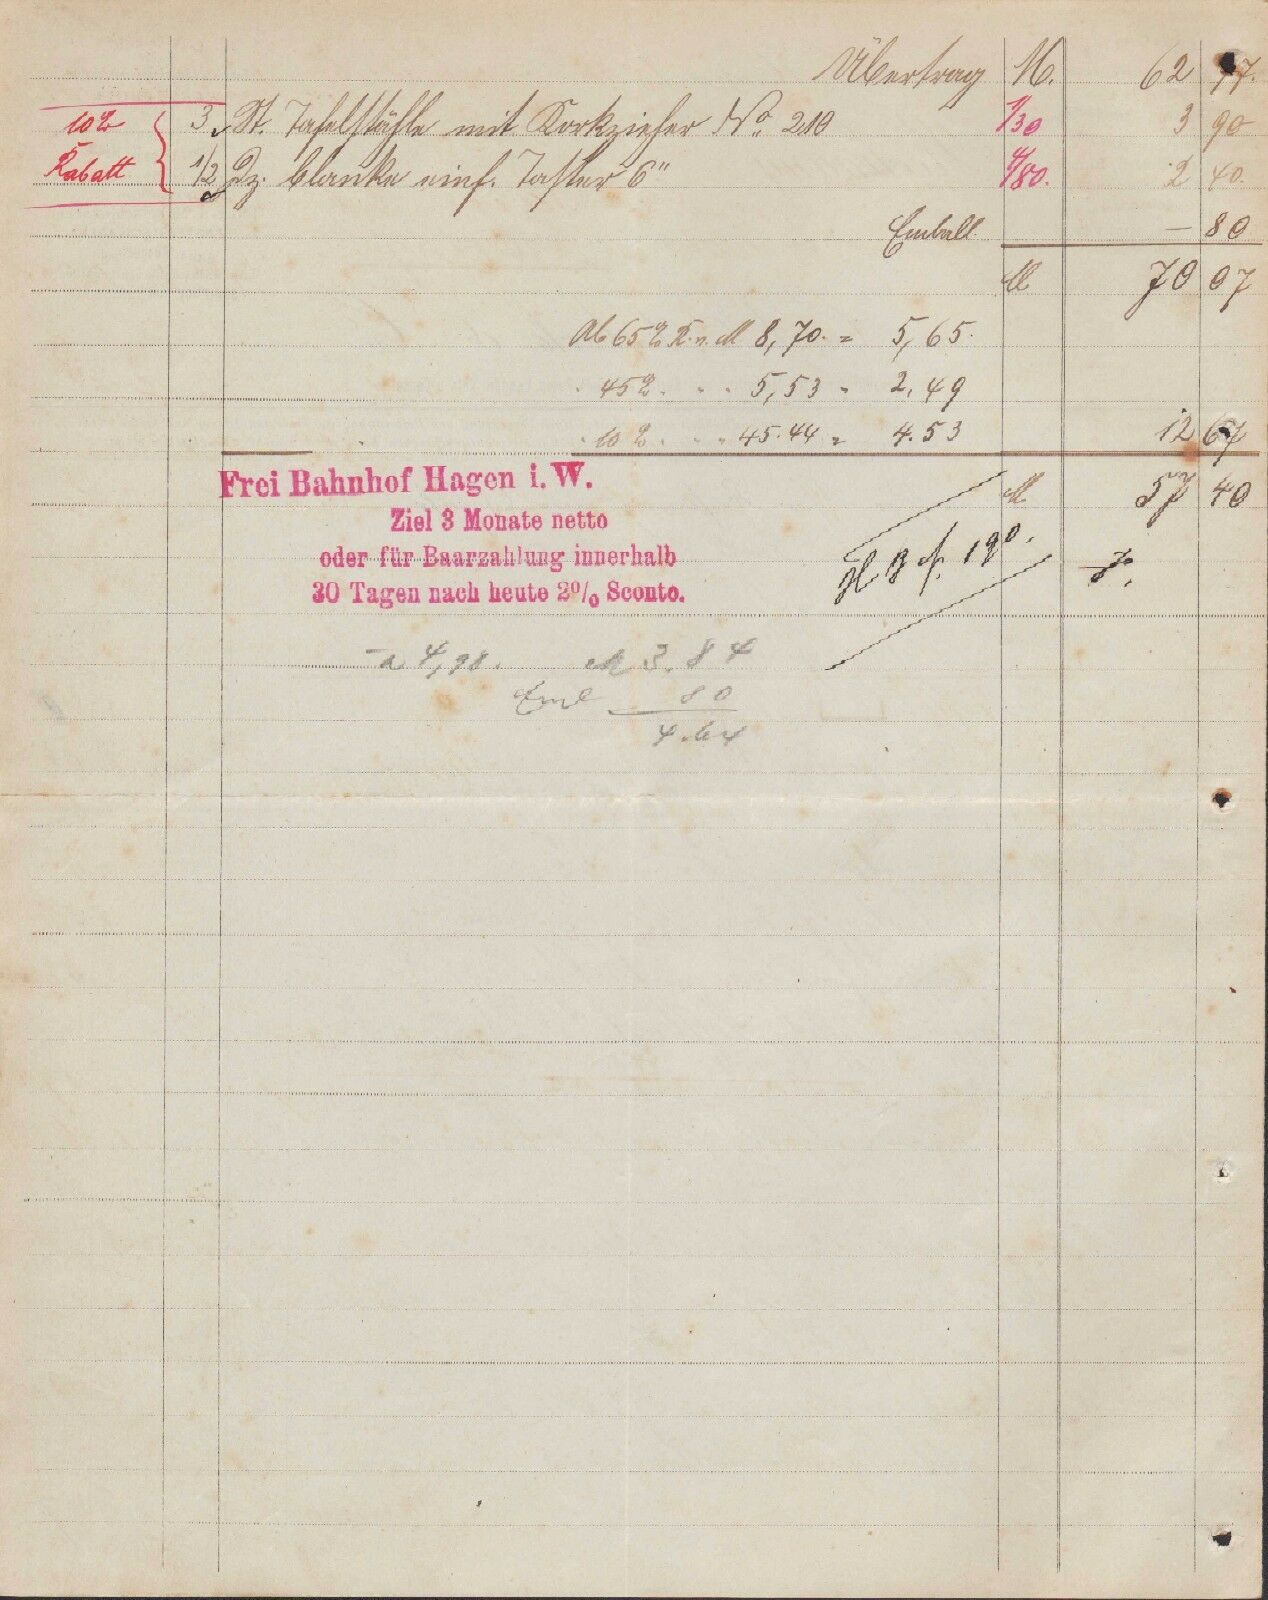 Übertrag M. 62 97.
10% 3 St. Tafelstähle mit Korkzieher No. 210 1/30 3 90
Rabatt 1/2 Dz. blanke einf. 6" 4/80. 2 40.
Emball. — 80
M 70 07
Ab 65% R. v. M 8,70. = 5,65.
" 45%. " " 5,53 = 2,49
" 10%. " " 45.44 = 4.53 12 67
M 57 40
Frei Bahnhof Hagen i. W.
Ziel 3 Monate netto
oder für Baarzahlung innerhalb
30 Tagen nach heute 2% Sconto.
190.
4,98. M 3.84
Emb 80
4.64